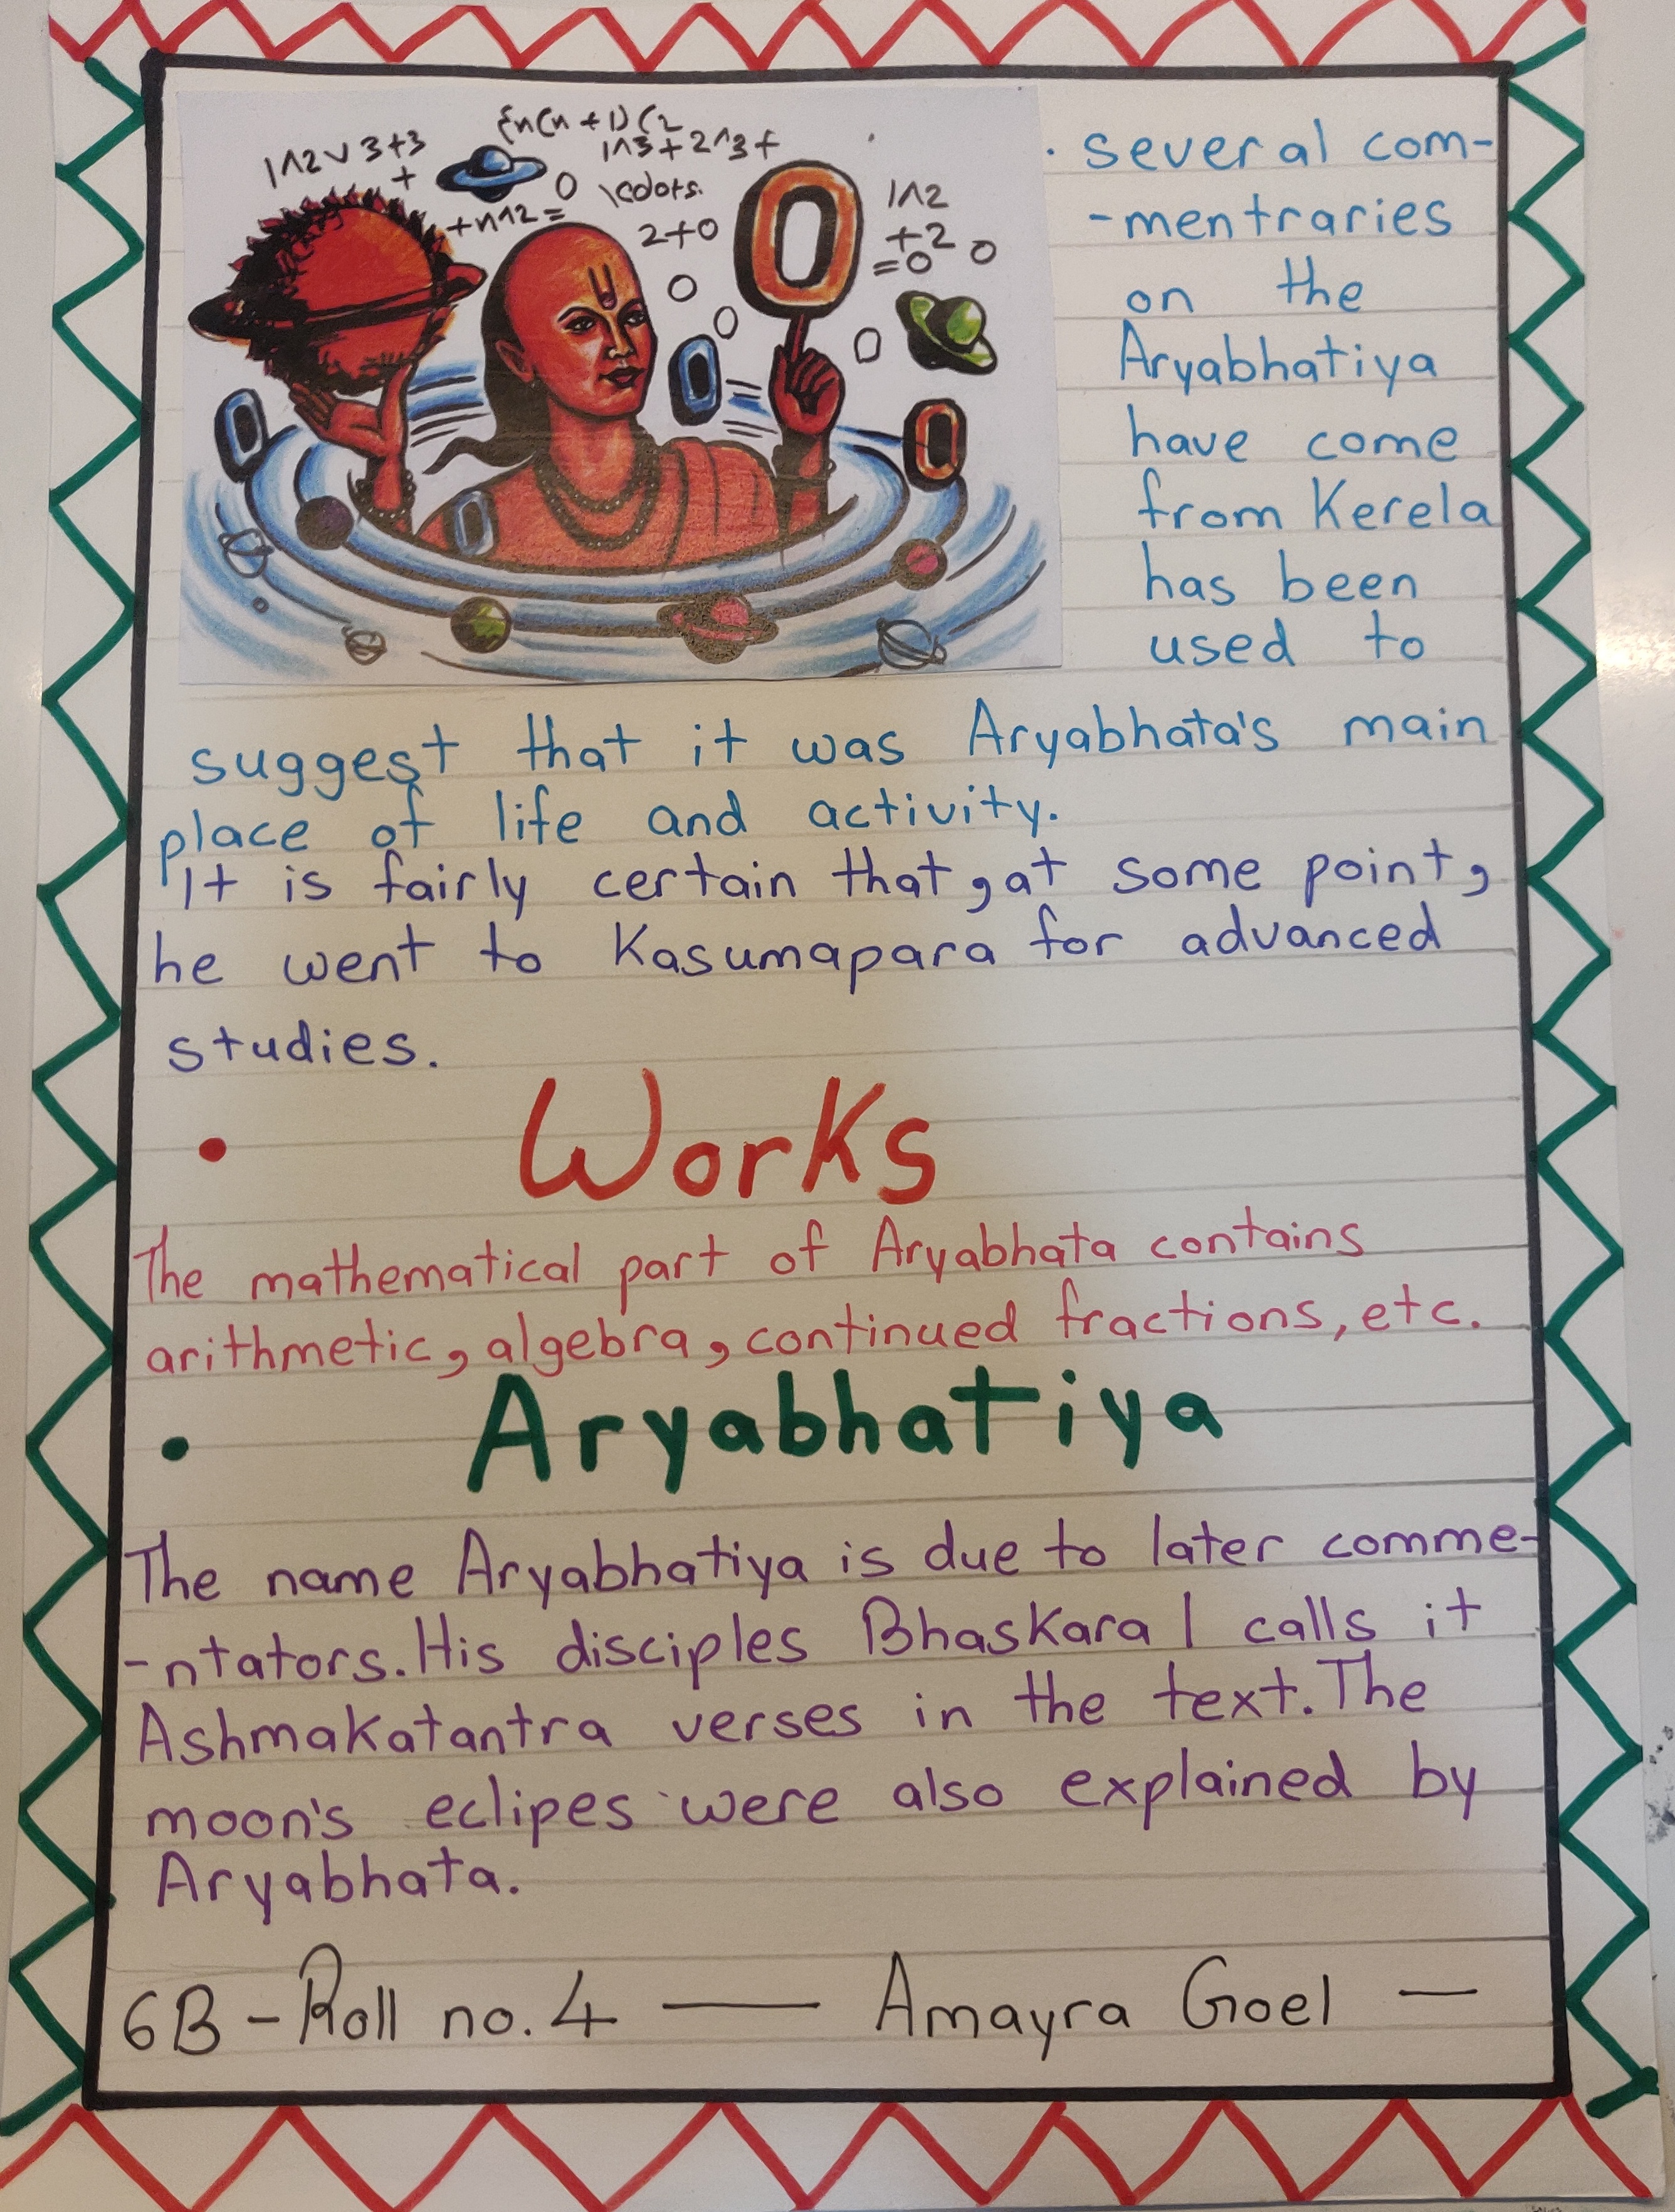 1^2v3+3
+
{n(n+1)(2
1^3+2^3+
0
\colors.
+n^2=
2+0
0
1^2
+2
=0 0
· several com-
-mentraries
on the
Aryabhatiya
have come
from Kerela
has been
used to
suggest that it was Aryabhata's main
place of life and activity.
It is fairly certain that, at some point,
he went to Kasumapara for advanced
studies.
• Works
The mathematical part of Aryabhata contains
arithmetic, algebra, continued fractions, etc.
• Aryabhatiya
The name Aryabhatiya is due to later comme-
-ntators. His disciples Bhaskara I calls it
Ashmakatantra verses in the text. The
moon's eclipes were also explained by
Aryabhata.
6B - Roll no. 4 — Amayra Goel —